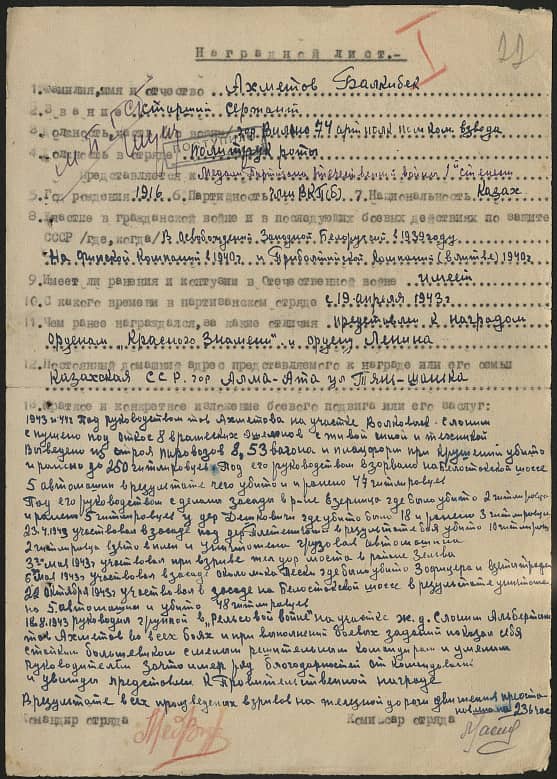 22
Наградной лист.-
1. Фамилия, имя и отчество Ахметов Балкибек
2. Звание Старший сержант
гор Вильно 74 арт полк пом ком. взвода
4. Должность в отряде политрук роты
Представляется к Медали Партизану Отечественной войны 1ой степени
5. Год рождения 1916 6. Партийность член ВКП(б) 7. Национальность казах
8. Участие в гражданской войне и в последующих боевых действиях по защите
СССР /где, когда/ В Освобождений Западной Белоруссий в 1939 году
На Финской Компаний в 1940г и Прибалтийской Компаний (в литве) 1940г
9. Имеет ли ранения и контузии в Отечественной войне имеет
10. С какого времени в партизанском отряде с 19 апреля 1943г
11. Чем ранее награждался, за какие отличия представлен к наградам
Орденам „Красного Знамени" и ордену „Ленина
12. Постоянный домашний адрес представляемого к награде или его семьи
Казахская ССР. гор Алма-Ата ул Тянь-шанска
13. Краткое и конкретное изложение боевого подвига или его заслуг:
1943 и 44г Под руководством тов Ахметова на участке Волковыск-Слоним
спущено под откос 8 вражеских эшелонов с живой силой и техникой
Выведено из строя паровозов 8, 53 вагона и платформ при крушений убито
и ранено до 250 гитлеровцев. Под его руководством взорвано на Белостокской шоссе
5 автомашин в результате чего убито и ранено 47 гитлеровцев
Под его руководством сделаны засады в районе где было убито 2 гитлеровца
и ранено 5 гитлеровцев у дер Деткович где убито было 18 и ранено 3 гитлеровца
23.4.1943 участвовал в засаде под дер в результате боя убито 10 гитлеровцев
2 гитлеровца взято в плен и уничтожена грузовая автомашина
3го мая 1943г участвовал при взрыве жел дор моста в районе Зельва
мая 1943г участвовал в засаде около Пески где было убито 3 офицера и
22 октября 1943г участвовал в засаде на Белостокской шоссе в результате уничтоже-
но 5 автомашин и убито 48 гитлеровцев
18.8.1943 руководил группой в „Рельсовой войне" на участке ж.д. Слоним Альбертин
тов Ахметов во всех боях и при выполнений боевых заданий показал себя
стойким большевиком смелым решительным командиром и умелым
Руководителем За что имеет ряд благодарностей от командований
и увиды представлен к Правительственной награде
В результате всех произведенах взривов на железной дороги движения приоста-
новлено на 236 час
Командир отряда Комиссар отряда